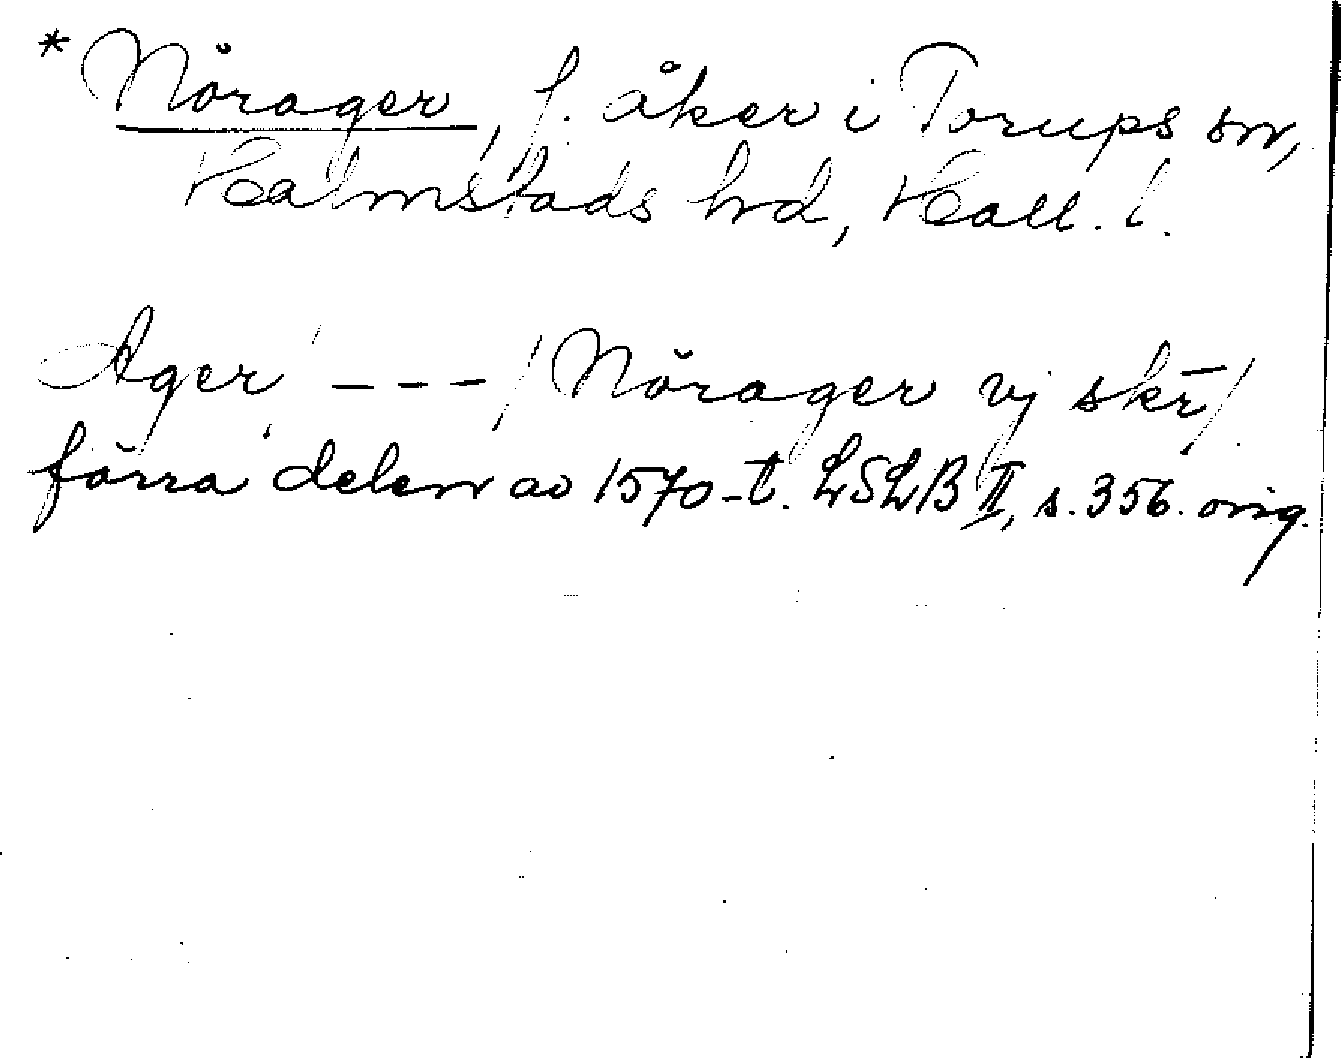 * Nörager, f. åker i Torups sn,
Halmstads hrd, Hall. l.
Ager' - - - / Nörager vj skr̄ /
förra delen av 1570-t. LSLB II, s. 356. orig.